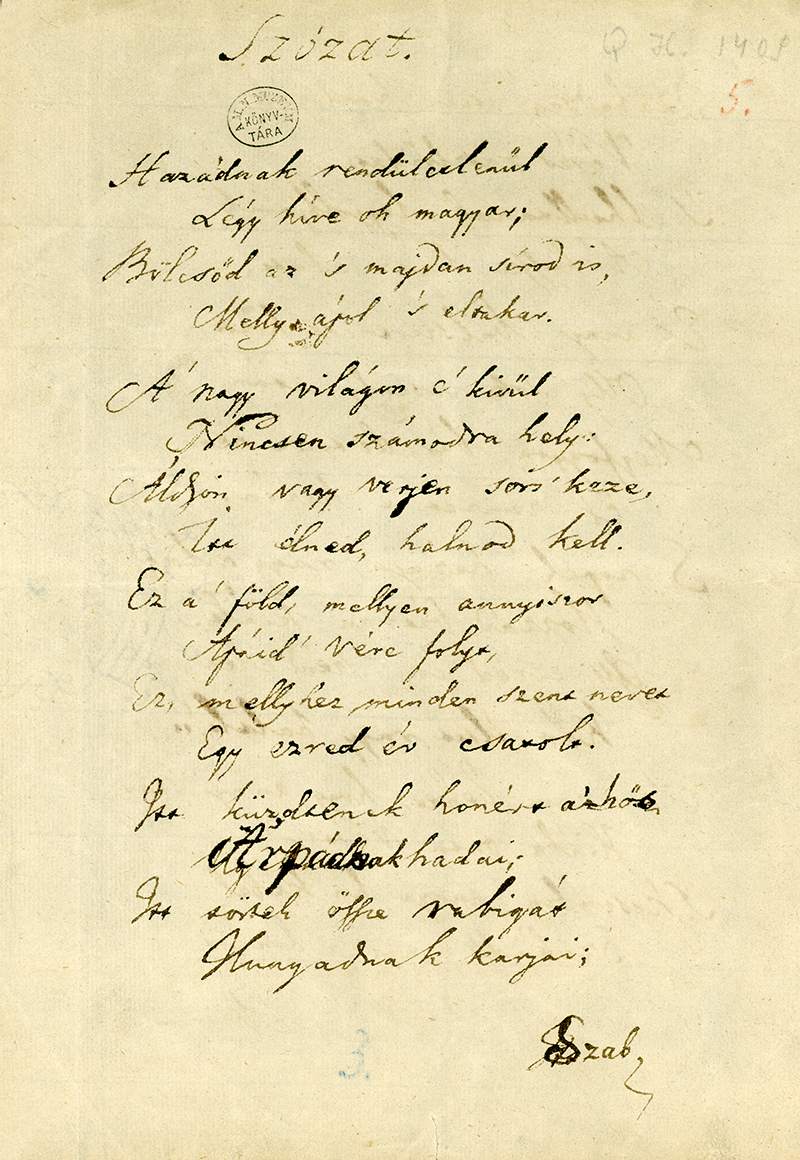 Szózat.
Q H. 1408
5.
A M. N. MUZEUM KÖNYV-TÁRA
Hazádnak rendületlenül
Légy híve oh magyar;
Bölcsőd az 's majdan sírod is,
Melly ápol 's eltakar.
A' nagy világon é kivül
Nincsen számodra hely:
Áldjon vagy verjen sors' keze,
Itt élned, halnod kell.
Ez a' föld, mellyen annyiszor
Apáid' vére folyt,
Ez, mellyhez minden szent nevet
Egy ezred év csatolt.
Itt küzdtenek honért a' hős
Árpádnak hadai;
Itt törtek össze rabigát
Hunyadnak karjai;
Szab